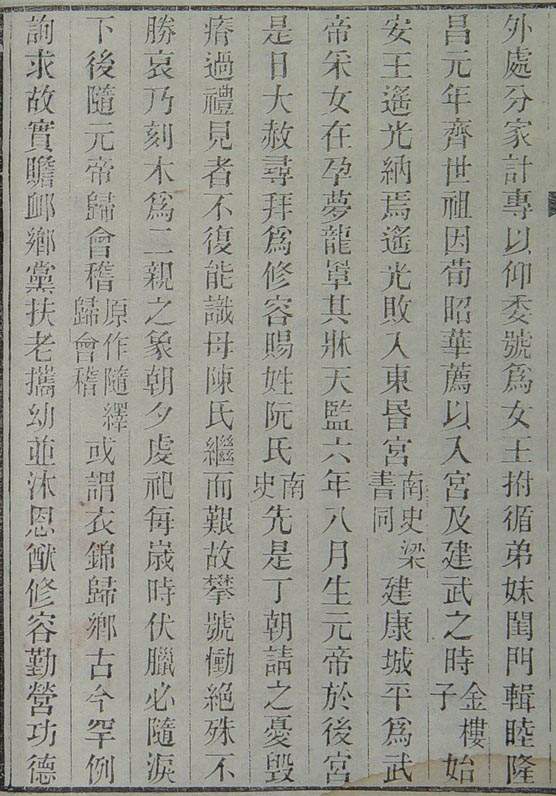 外處分家計專以仰委號爲女王拊循弟妹閨門輯睦隆
昌元年齊世祖因荀昭華薦以入宮及建武之時金樓子始
安王遙光納焉遙光敗入東昏宮南史梁書同建康城平爲武
帝采女在孕夢龍罩其牀天監六年八月生元帝於後宮
是日大赦尋拜爲修容賜姓阮氏南史先是丁朝請之憂毀
瘠過禮見者不復能識母陳氏繼而艱故攀號慟絕殊不
勝哀乃刻木爲二親之象朝夕虔祀每歲時伏臘必隨淚
下後隨元帝歸會稽原作隨繹歸會稽或謂衣錦歸鄉古今罕例
詢求故實瞻邺鄉黨扶老攜幼並沐恩猷修容勤營功德